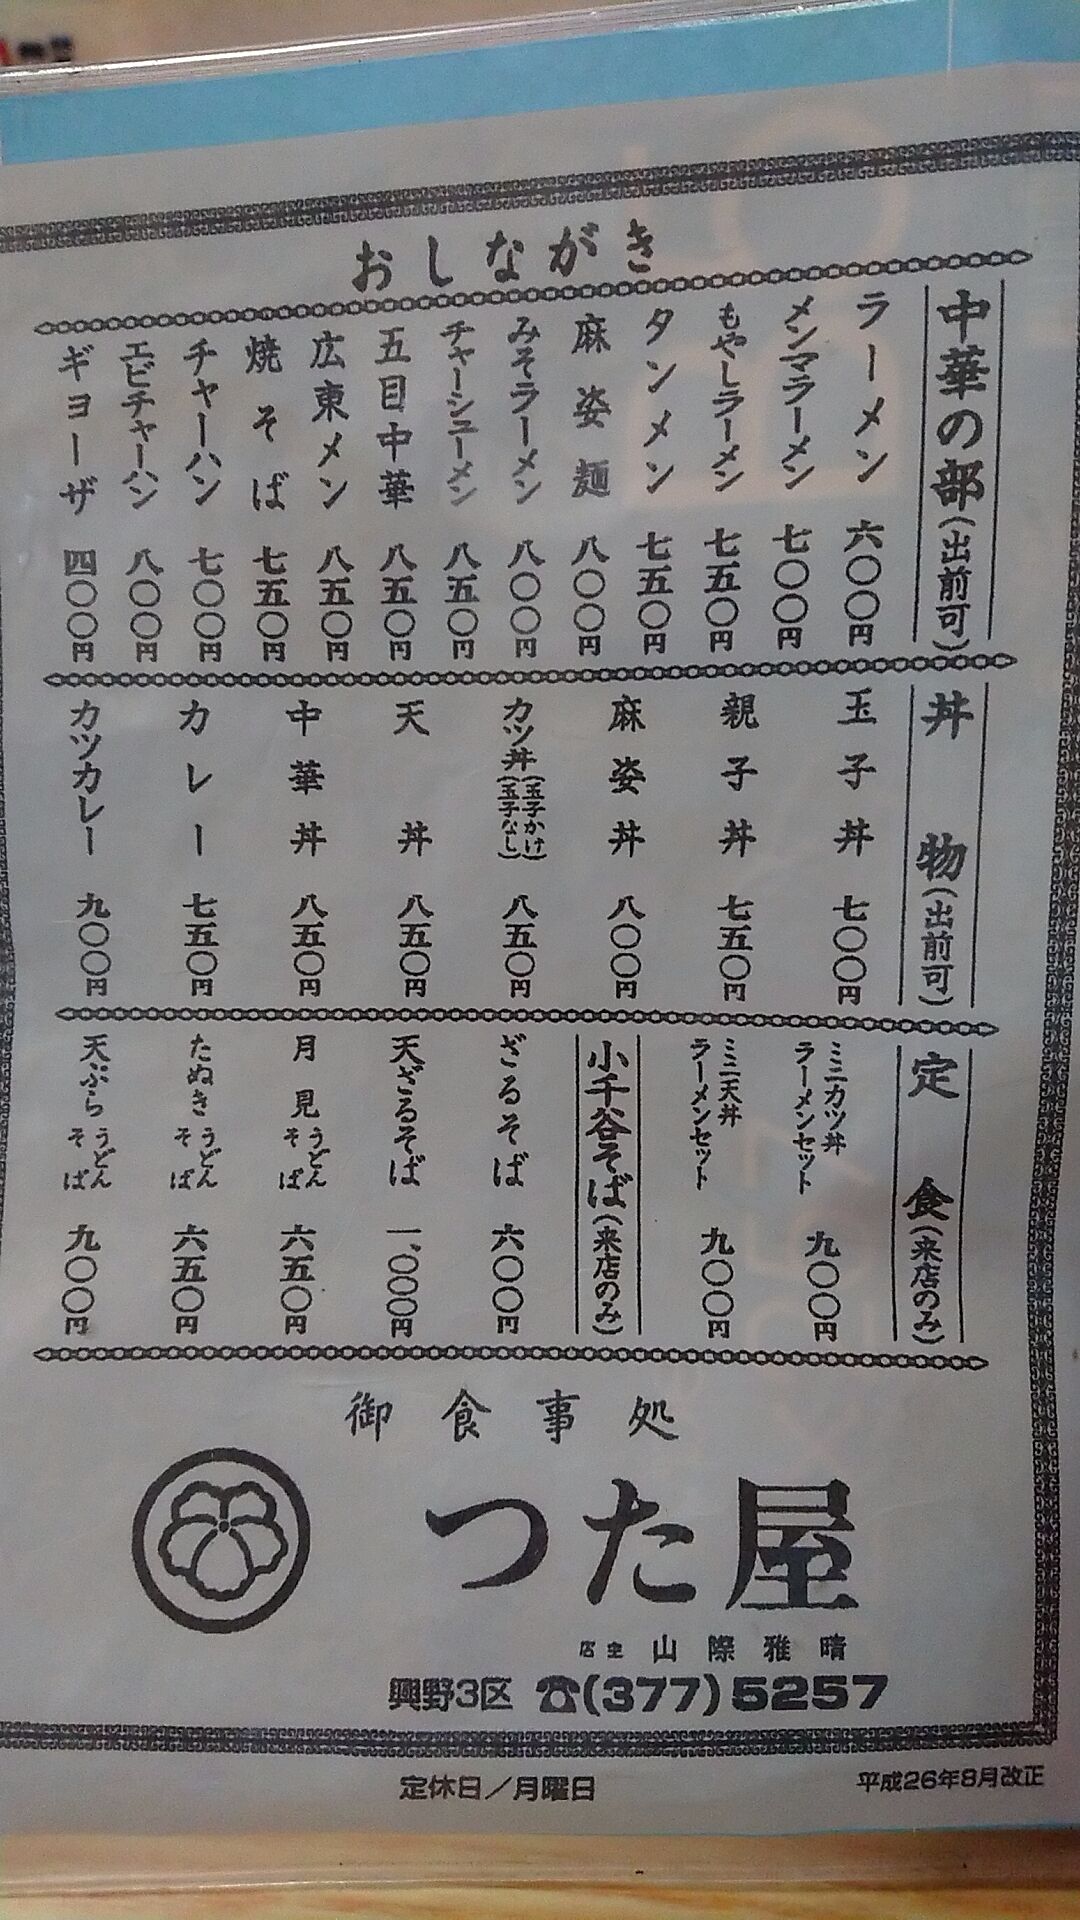 おしながき
中華の部(出前可)
ラーメン 六〇〇円
メンマラーメン 七〇〇円
もやしラーメン 七五〇円
タンメン 七五〇円
麻姿麺 八〇〇円
みそラーメン 八〇〇円
チャーシューメン 八五〇円
五目中華 八五〇円
広東メン 八五〇円
焼そば 七五〇円
チャーハン 七〇〇円
エビチャーハン 八〇〇円
ギョーザ 四〇〇円
丼物(出前可)
玉子丼 七〇〇円
親子丼 七五〇円
麻姿丼 八〇〇円
カツ丼(玉子かけ)(玉子なし) 八五〇円
天丼 八五〇円
中華丼 八五〇円
カレー 七五〇円
カツカレー 九〇〇円
定食(来店のみ)
ミニカツ丼
ラーメンセット 九〇〇円
ミニ天丼
ラーメンセット 九〇〇円
小千谷そば(来店のみ)
ざるそば 六〇〇円
天ざるそば 一、〇〇〇円
月見うどんそば 六五〇円
たぬきうどんそば 六五〇円
天ぷらうどんそば 九〇〇円
御食事処
つた屋
店主 山際雅晴
興野3区 ☎(377)5257
定休日/月曜日
平成26年8月改正